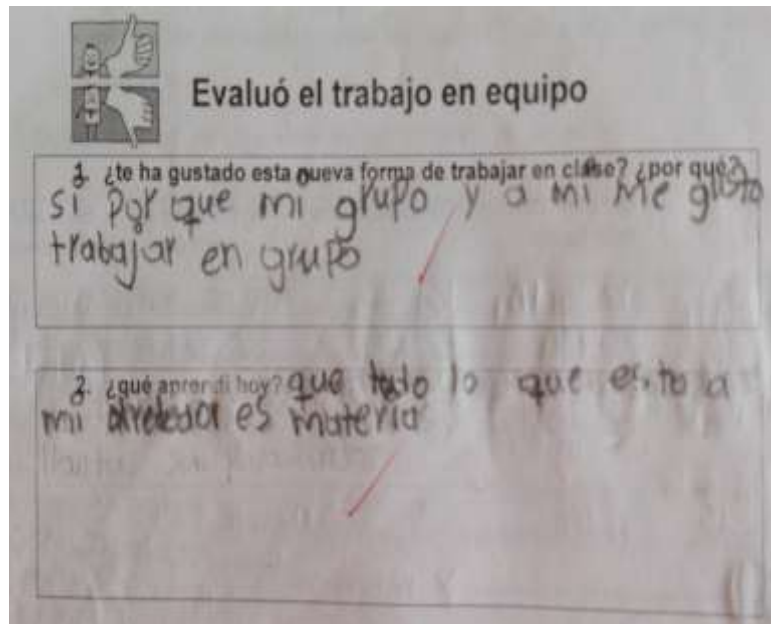 Evaluó el trabajo en equipo
1. ¿te ha gustado esta nueva forma de trabajar en clase? ¿por qué?
si por que mi grupo y a mi me gusto
trabajar en grupo
2. ¿qué aprendi hoy? que todo lo que esta a
mi alrededor es materia